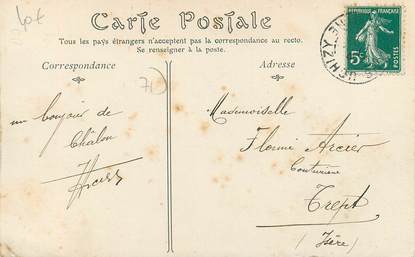 Carte Postale
Tous les pays étrangers n'acceptent pas la correspondance au recto.
Se renseigner à la poste.
Correspondance
Adresse
REPUBLIQUE FRANÇAISE
5c
POSTES
UCHIZY
71
un bonjour de
Châlon
Mademoiselle
Florine Arcier
Couturière
Trept
(Isère)